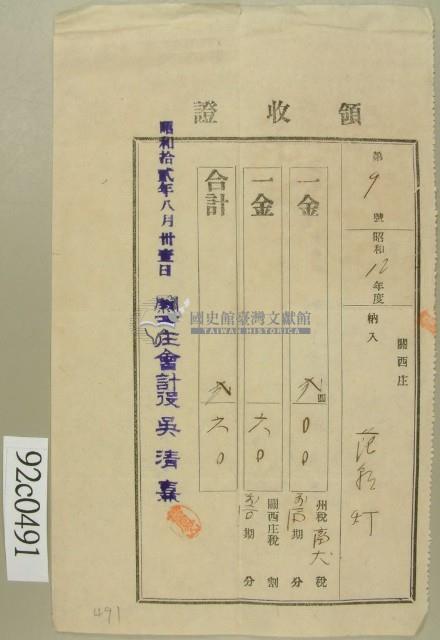 領收證
第9號
昭和12年度
納入
關西庄
范 灯
一金
弐圓00
州稅 稅
期分
一金
六0
關西庄稅 割
期分
合計
弐六0
昭和拾貳年八月卅壹日
關西庄會計役吳清嘉
國史館臺灣文獻館
TAIWAN HISTORICA
92c0491
491